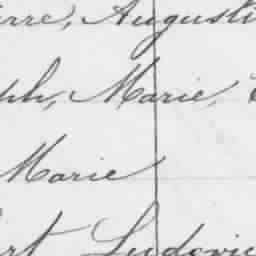 erre, Augusti
ph, Marie,
Marie
rt Ludovic